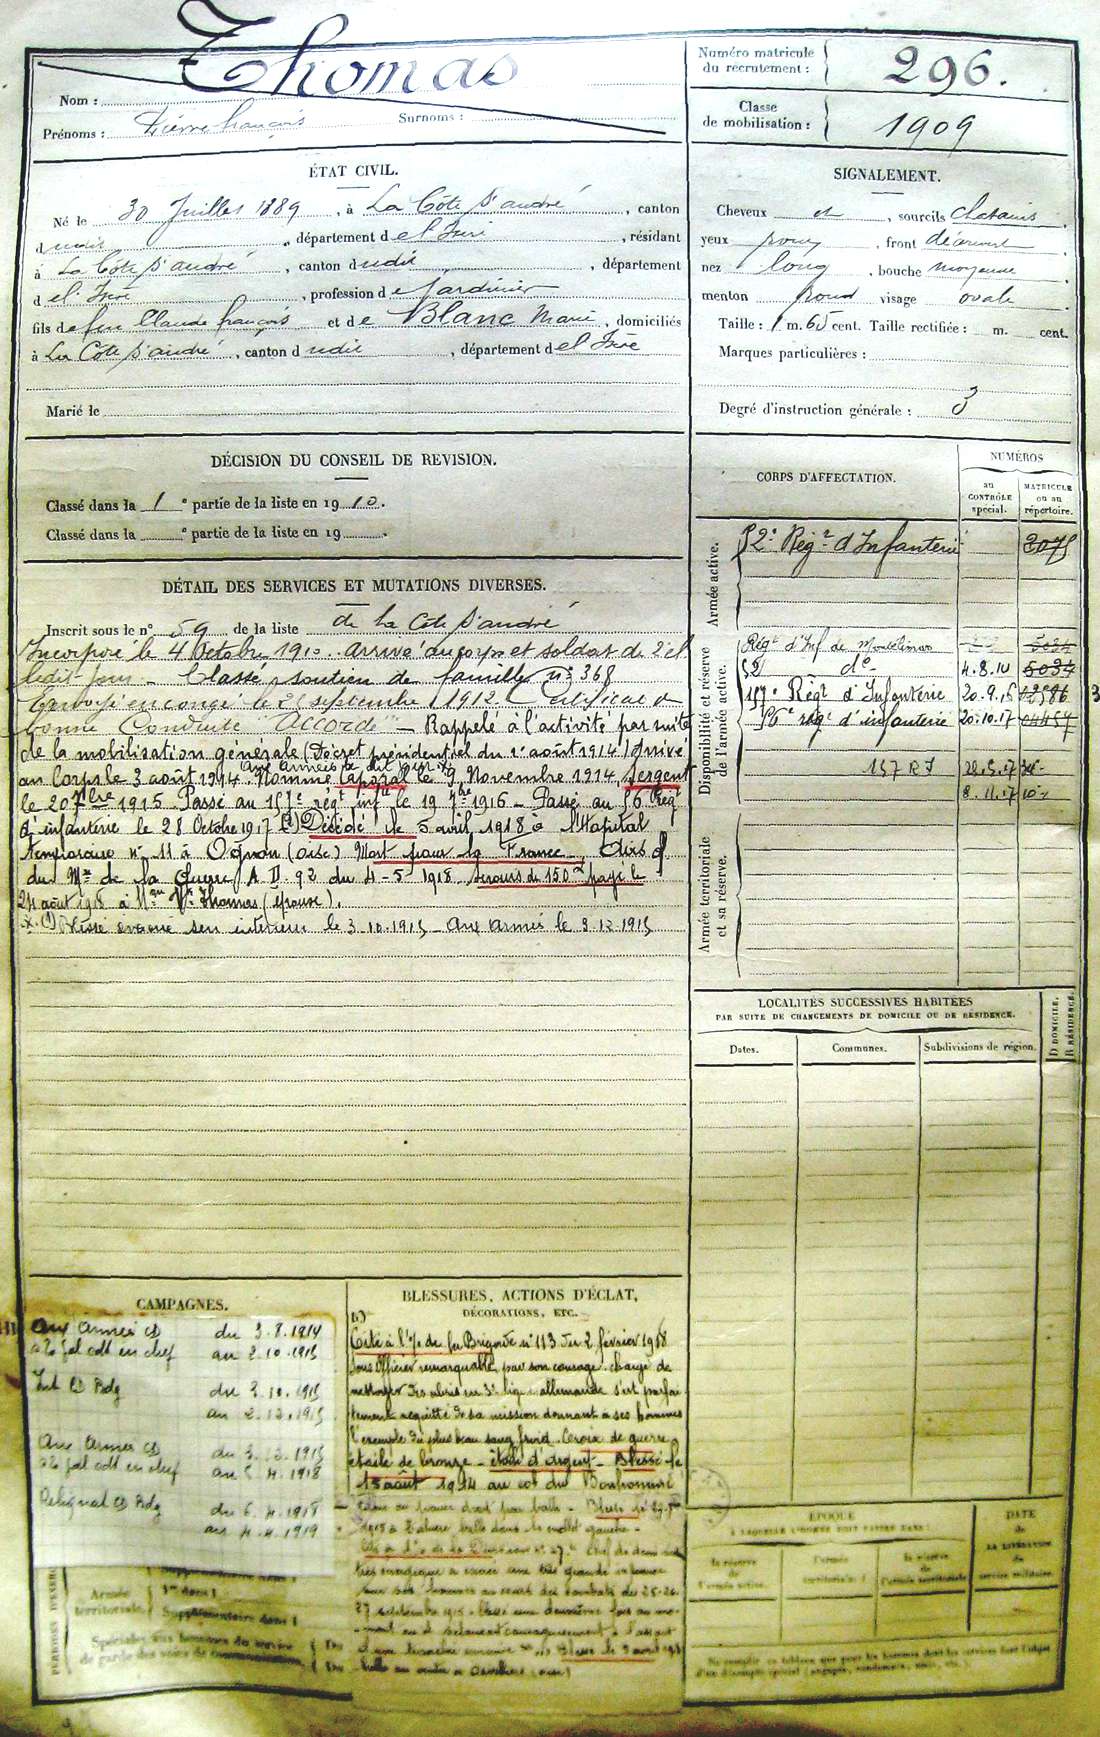 Nom : Thomas
Prénoms : Pierre françois Surnoms :
Numéro matricule du recrutement : 296.
Classe de mobilisation : 1909
ÉTAT CIVIL.
Né le 30 Juillet 1889, à La Côte St andré, canton
dudit, département de l'Isère, résidant
à La Côte St andré, canton dudit, département
de l'Isère, profession de Jardinier
fils de feu Claude françois et de Blanc Marie, domiciliés
à La Côte St andré, canton dudit, département de l'Isère
Marié le
SIGNALEMENT.
Cheveux et, sourcils chatains
yeux roux, front découvert
nez long, bouche moyenne
menton rond visage ovale
Taille : 1 m. 65 cent. Taille rectifiée : m. cent.
Marques particulières :
Degré d'instruction générale : 3
DÉCISION DU CONSEIL DE REVISION.
Classé dans la 1e partie de la liste en 1910.
Classé dans la e partie de la liste en 19 .
DÉTAIL DES SERVICES ET MUTATIONS DIVERSES.
Inscrit sous le n° 59 de la liste de La Côte St andré
Incorporé le 4 Octobre 1910. arrivé au corps et soldat de 2e cl
ledit jour – Classé soutien de famille n° 368
Envoyé en congé le 25 septembre 1912. Certificat de
bonne Conduite "Accordé" – Rappelé à l'activité par suite
de la mobilisation générale (Décret présidentiel du 1er août 1914) Arrivé
aux armées le dit jour
au Corps le 3 août 1914. Nommé Caporal le 9 Novembre 1914, Sergent
le 20 7bre 1915 Passé au 157e régt inf le 19 7bre 1916 – Passé au 56 Régt
d'infanterie le 28 Octobre 1917 Décédé le 5 avril 1918 à l'Hopital
temporaire n° 11 à Ognon (Oise) Mort pour la France. Avis
du Mre de la Guerre A II. 92 du 4-5-1918 Secours de 150f payé le
24 août 1918 à Mme Vve Thomas (épouse).
(1) Blessé évacué sur intérieur le 3.10.1915 – Aux Armées le 3.12.1915
CORPS D'AFFECTATION.
NUMÉROS
au CONTRÔLE spécial.
MATRICULE ou au répertoire.
Armée active.
52e Régt d'Infanterie 2075
Disponibilité et réserve de l'armée active.
Régt d'Inf de Montélimar 5034
52 do 4.8.14 5034
157e Régt d'Infanterie 20.9.16 12986
56e régt d'infanterie 20.10.17
157 RI 28.5.17
8.11.17
Armée territoriale et sa réserve.
LOCALITÉS SUCCESSIVES HABITÉES
PAR SUITE DE CHANGEMENTS DE DOMICILE OU DE RÉSIDENCE.
Dates. Communes. Subdivisions de région. D DOMICILE. R RÉSIDENCE.
CAMPAGNES.
Aux Armées CD du 3.8.1914
au 2.10.1915
Int CD du 3.10.1915
au 2.12.1915
Aux Armées CD du 3.12.1915
au 5.4.1918
du 6.4.1918
au 4.4.1919
Armée territoriale
BLESSURES, ACTIONS D'ÉCLAT,
DÉCORATIONS, ETC.
Cité à l'O. de la Brigade n° 113 du 2 février 1918
Sous Officier remarquable par son courage. chargé de
nettoyer des abris en 3e ligne allemande s'est parfai
tement acquitté de sa mission donnant à ses hommes
l'exemple du plus beau sang froid. Croix de guerre
étoile de bronze – étoile d'argent – Blessé le
15 août 1914 au col du Bonhomme
balle dans le mollet gauche –
très énergique a exercé une très grande influence
sur ses hommes au cours des combats des 25-26-
27 septembre 1915
ÉPOQUE
DATE de LA LIBÉRATION du service militaire.